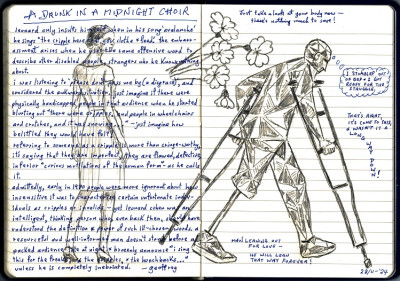 A DRUNK IN A MIDNIGHT CHOIR
Leonard only insults himself when in his song 'avalanche'
he says "the cripple here that you clothe & feed" the
arises when he uses the same offensive word to
describe other disabled people, strangers who he knows nothing
about.
I was listening to "please don't pass me by (a disgrace)", and
considered the awkward situation. just imagine if there were
physically handicapped people in that audience when he started
blurting out "there were cripples, and people in wheelchairs
and crutches, and it was snowing" – just imagine how
belittled they would have felt!
referring to someone as a cripple is more than cringe-worthy,
it's saying that they are impotent, they are flawed, defective,
inferior "curious mutations of the human form" as he calls
it.
admittedly, early in 1970 people were more ignorant about how
insensitive it was to categorize certain unfortunate indiv-
iduals as cripples or spastics – yet Leonard Cohen was an
intelligent, thinking person who, even back then, should have
understood the definition & power of such words. a
resourceful and well-informed man doesn't stand before a
packed audience late at night & brazenly announce "I sing
this for the freaks, & the cripples, & the hunchbacks..."
unless he is completely inebriated. – geoffrey
Just take a look at your body now –
there's nothing much to save!
I STUMBLED OUT
OF BED & I GOT
READY FOR THE
STRUGGLE.
THAT'S RIGHT,
IT'S COME TO THIS,
& WASN'T IT A
LONG
WAY
DOWN?
MEN LEANING OUT
FOR LOVE –
HE WILL LEAN
THAT WAY FOREVER!